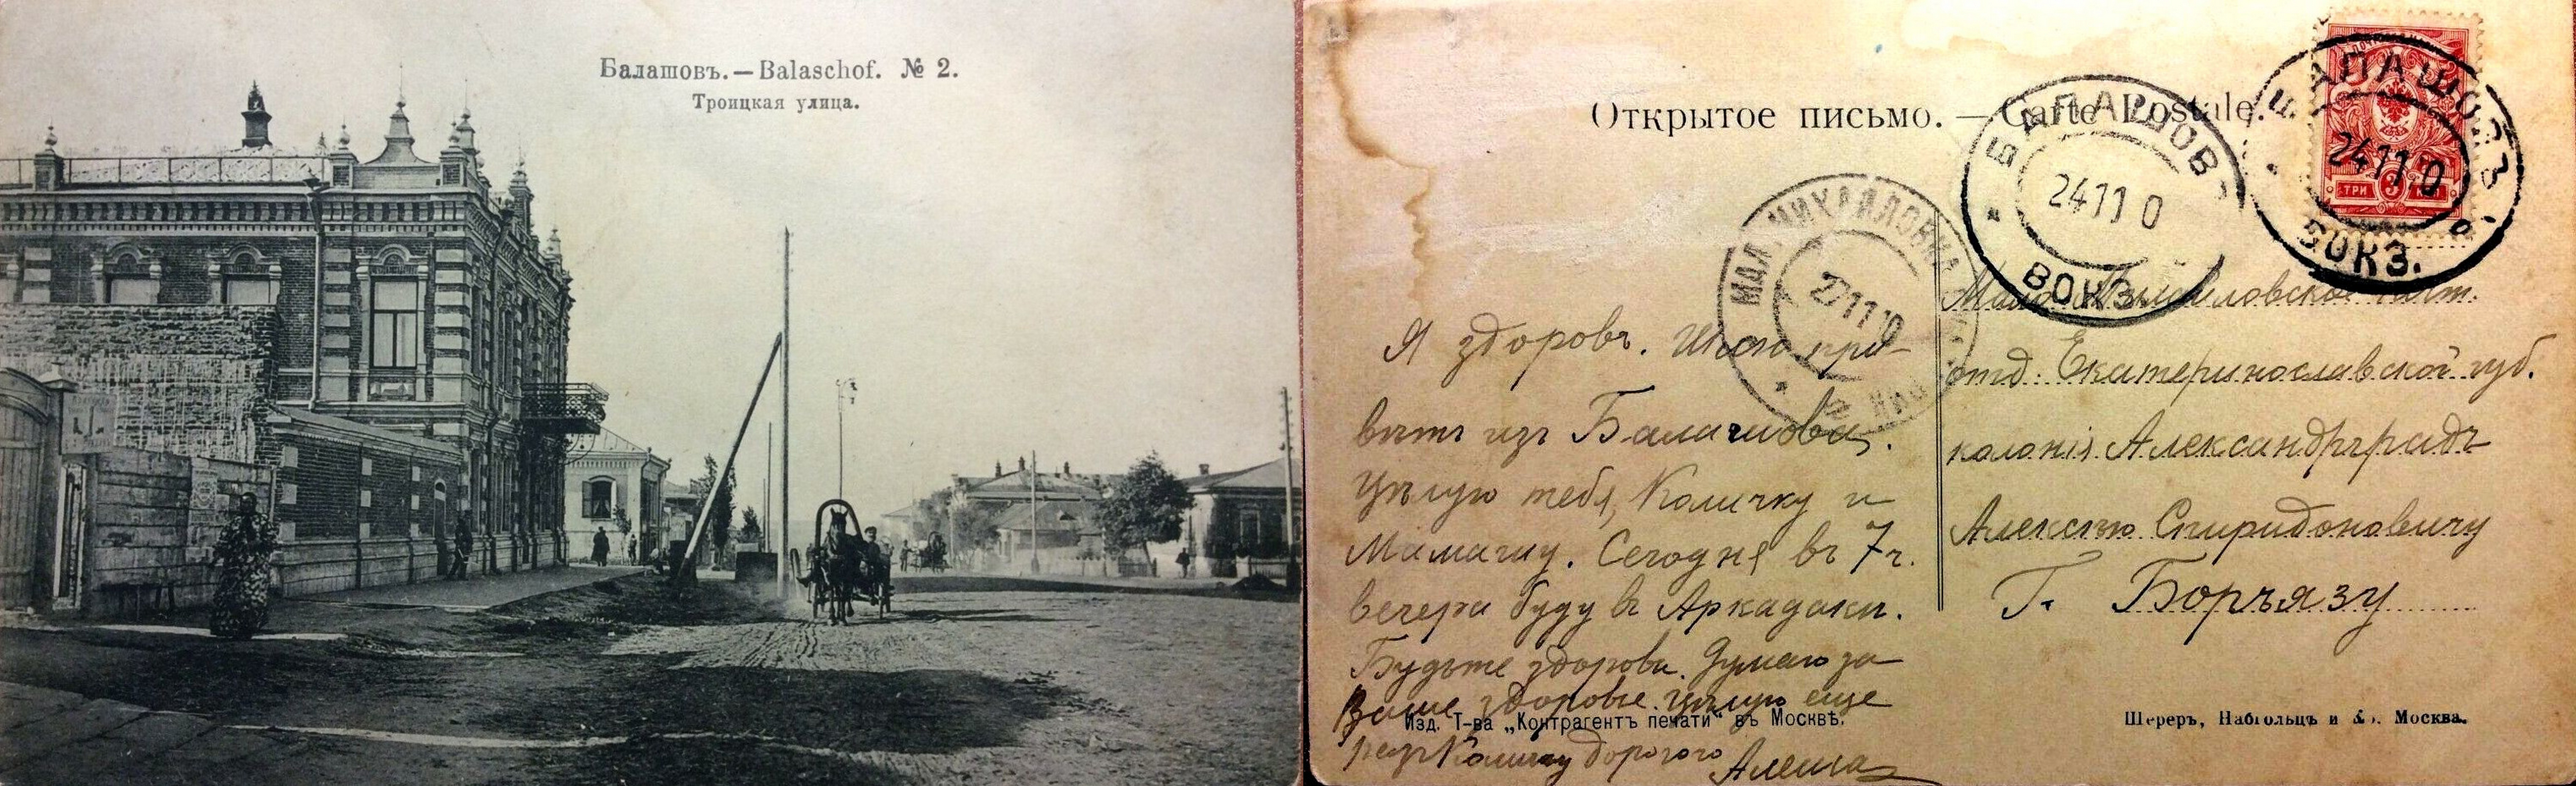 Балашовъ. — Balaschof. № 2.
Троицкая улица.
Открытое письмо. — Carte Postale.
БАЛАШОВЪ
24 11 0
ВОКЗ.
БАЛАШОВЪ
24 11 10
ВОКЗ.
ТРИ 3 КОП
МАЛ. МИХАЙЛОВКА
27 11 10
Я здоровъ. Шлю при-
вѣтъ изъ Балашова.
Цѣлую тебя, Количку и
Мамашу. Сегодня въ 7 ч.
вечера буду въ Аркадакъ.
Будьте здоровы. Думаю за
Ваше здоровье. Цѣлую еще
разъ Количку дорогого
Алеша
Мало-Михайловское почт.
отд. Екатеринославской губ.
колонія Александрградъ
Алексѣю Спиридоновичу
Г. Борьязу
Изд. Т-ва „Контрагентъ печати“ въ Москвѣ.
Шереръ, Набгольцъ и Ко. Москва.